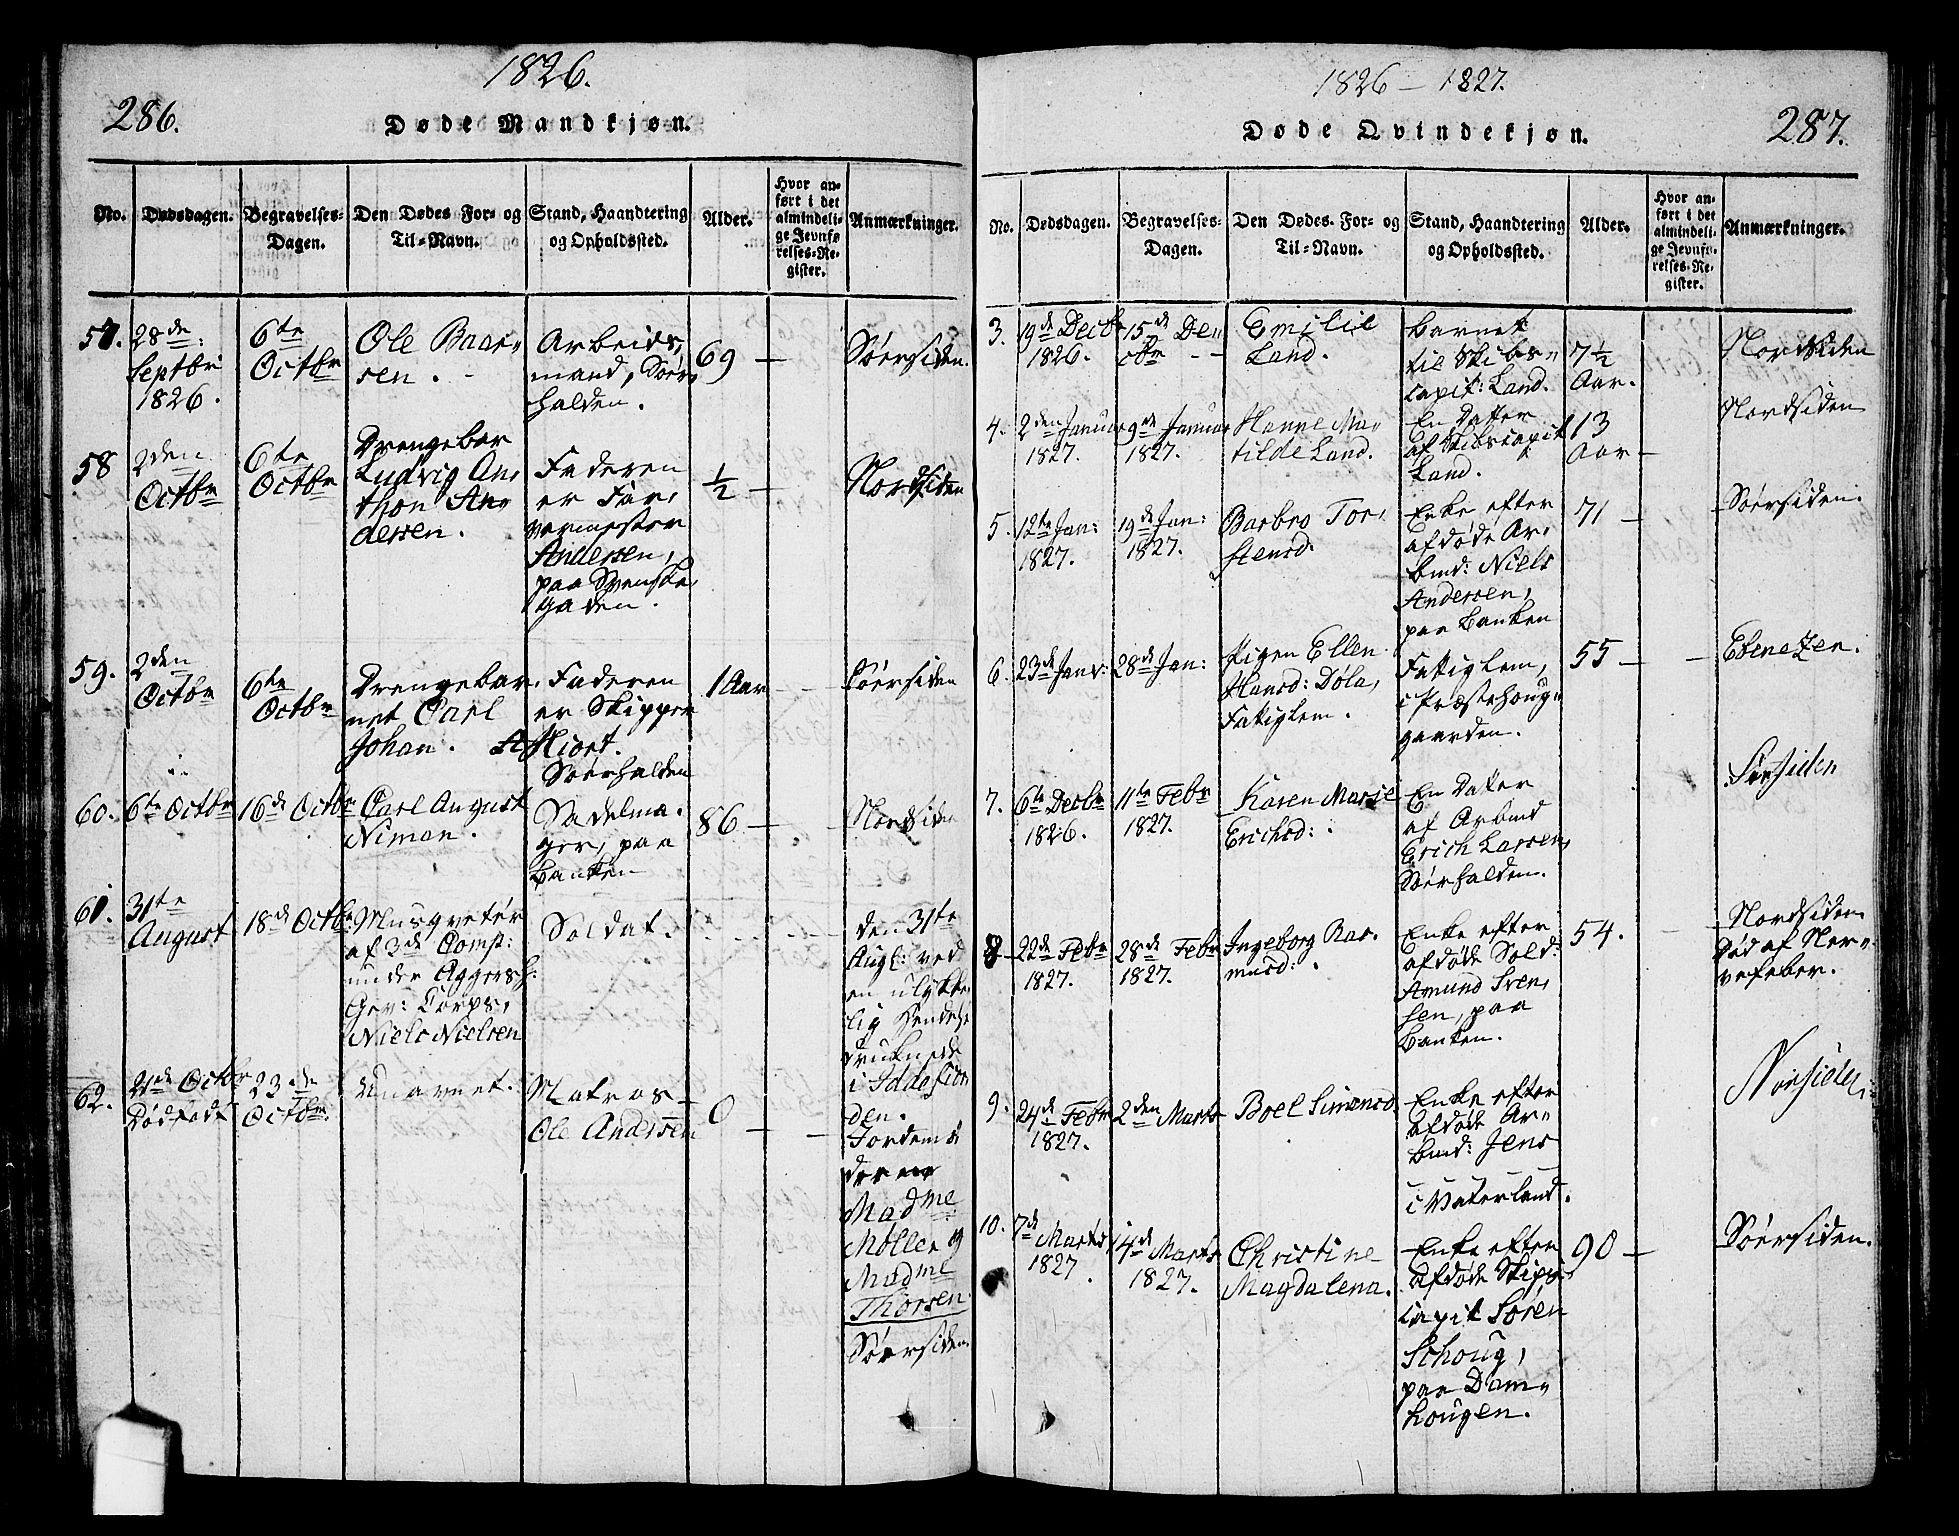 1826.
286.
Døde Mandkjøn.
No.
Dødsdagen.
Begravelses-
Dagen.
Den Dødes For- og
Til-Navn.
Stand, Haandtering
og Opholdssted.
Alder.
Hvor an-
ført i det
almindeli-
ge Jevnfø
relses-Re-
gister.
Anmærkninger.
57.
28de
Septbr
1826.
6te
Octbr
Ole Baar-
sen.
Arbeids,
mand, Søer,
halden.
69
Søersiden.
58
2den
Octbr
6te
Octbr
Drengebar
Ludvig An,
thon An,
dersen.
Faderen
er Far,
vermester
Andersen,
paa Svenske,
gaden.
1/2
Nordsiden
59.
2den
Octbr
6te
Octbr
Drengebar,
net Carl
Johan.
Faderen
er Skipper
Hiort.
Søerhalden
1 Aar
Søersiden
60.
6te Octbr
16de Octbr
Carl August
Niman.
Sadelma,
ger, paa
Banken
86
Nordsiden
61.
31te
August
18de Octbr
Musqvetér
af 3de Comp:
under Aggersh:
Gev: Corps,
Niels Nielsen
Soldat.
den 31te
Augt: ved
en ulykke,
lig Hendelse
druknede
i Iddefior
den.
62.
21de Octbr
Dødfødt
23de
Octbr.
Unavnet.
Matros
Ole Andersen
0
Jordemø
derene
Madme
Møller og
Madme
Thorsen
Søersiden.
1826 - 1827.
287.
Døde Qvindekjøn.
No.
Dødsdagen.
Begravelses-
Dagen.
Den Dødes For- og
Til-Navn.
Stand, Haandtering
og Opholdssted.
Alder.
Hvor an-
ført i det
almindeli-
ge Jevnfø-
relses-Re-
gister.
Anmærkninger.
3.
19de Decbr
1826.
15de De-
cbr
Emilie
Land.
Barnet
til Skibs-
capit: Land.
7 1/2
Aar.
Nordsiden
4.
2den Januar
1827.
9de Januar
1827.
Hanne Ma,
tilde Land.
En Datter
af Skibscapit
Land.
13
Aar
Nordsiden
5.
12te Jan:
1827.
19de Jan:
1827.
Barbro Tor,
stensd.
Enke efter
afdøde Ar,
bmd: Niels
Andersen,
paa Banken
71
Søersiden.
6.
23de Janv:
28de Jan:
Pigen Ellen
Hansd: Døla,
Fattiglem.
Fattiglem,
i Præstehoug-
gaarden.
55
Ebenetzer.
7.
6te Decbr
1826.
11te Febr
1827.
Karen Marie
Erichsd:
En Datter
af Arbmd
Erich Larsen,
Søerhalden.
Sørsiden
8
22de Febr
1827.
28de Febr
1827.
Ingeborg Ras,
musd:
Enke efter
afdøde Sold:
Amund Sven,
sen, paa
Banken.
54.
Nordsiden
Død af Ner-
vefeber.
9.
24de Febr
1827.
2den Marts
Boel Simensd.
Enke efter
afdøde Ar-
bmd: Jens
i Vaterland.
Norsiden
10.
7de Marts
1827
14de Marts
1827.
Christine
Magdalena.
Enke efter
afdøde Skips
capit Søren
Schoug,
paa Dam-
hougen.
90
Søersiden.